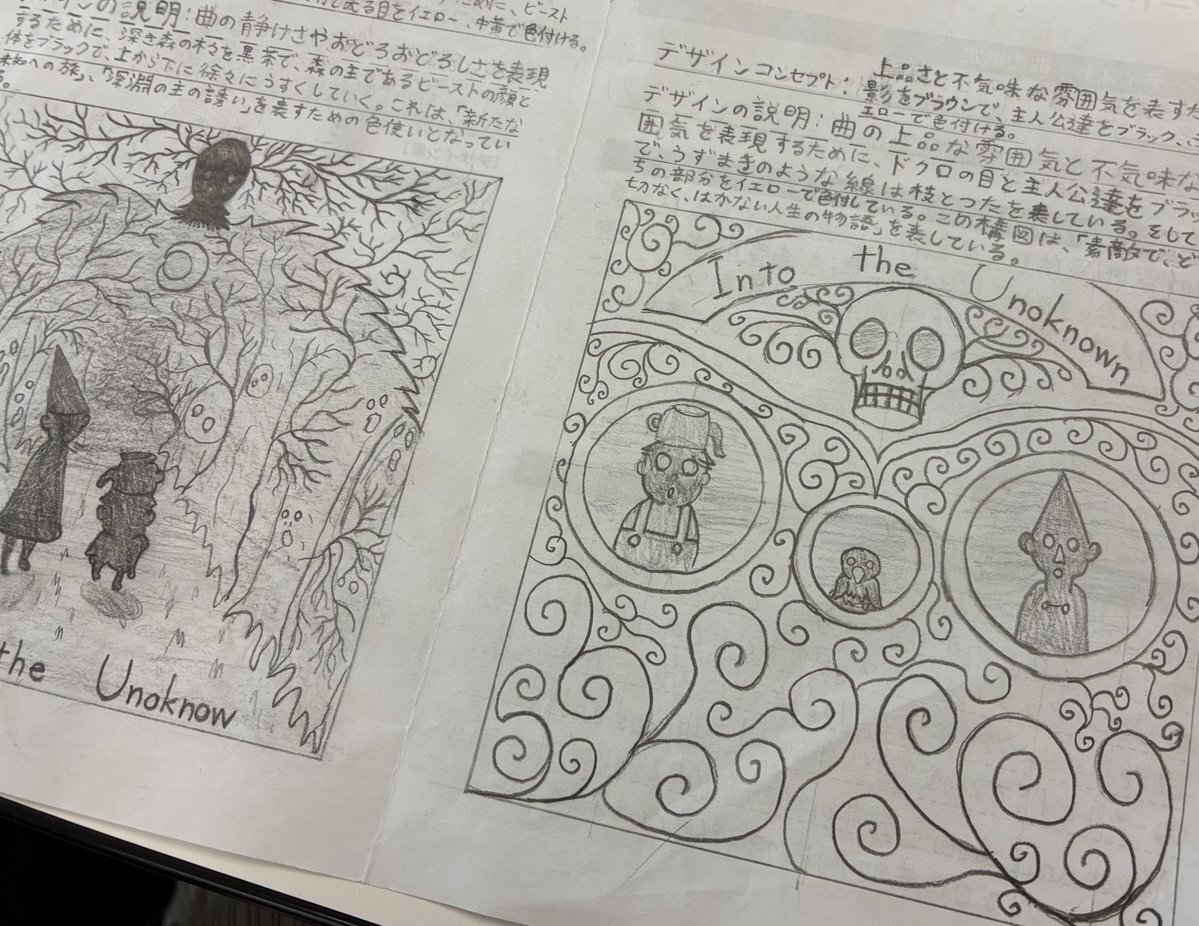 めに、ビースト
る目をイエロー、中黄で色付ける。
の説明:曲の静けさやおどろおどろしさを表現
するために、深き森の木々を黒茶で、森の主であるビーストの顔と
体をブラックで、上から下に徐々にうすくしていく。これは、「新たな
未知への旅」、「深淵の主の誘い」を表すための色使いとなってい
る。
the Unoknow
デザインコンセプト: 上品さと不気味な雰囲気を表す
影をブラウンで、主人公達をブラック、
エローで色付ける。
デザインの説明:曲の上品な雰囲気と不気味な
囲気を表現するために、ドクロの目と主人公達をブラ
で、うずまきのような線は枝とつたを表している。そして
ちの部分をイエローで色付している。この構図は、「素敵で、ど
切なく、はかない人生の物語」を表している。
Into the Unoknown